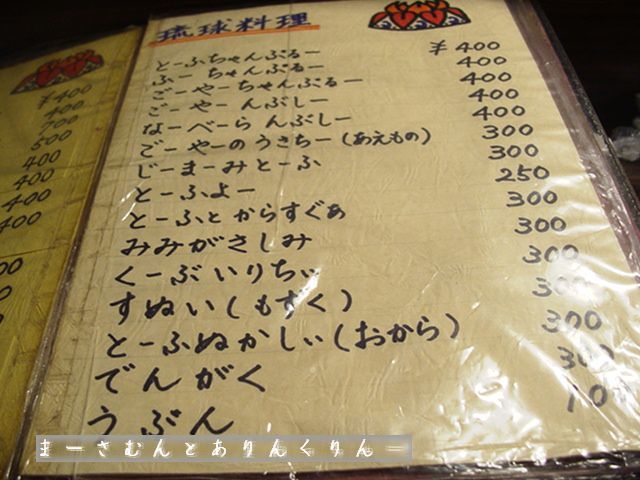 ¥400
400
700
500
400
400
400
400
琉球料理
とーふちゃんぷるー ¥400
ふーちゃんぷるー 400
ごーやーちゃんぷるー 400
ごーやー んぶしー 400
なーべーら んぶしー 400
ごーやーのうさちー(あえもの) 300
じーまーみとーふ 300
とーふよー 250
とーふとからすぐぁ 300
みみがさしみ 300
くーぶいりちぃ 300
すぬい(もずく) 300
とーふぬかしぃ(おから) 300
でんがく 300
うぶん
まーさむんとありんくりんー